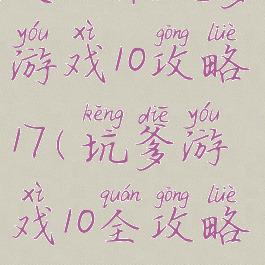 yóu xì gōng lüè
游戏10攻略
kēng diē yóu
17(坑爹游
xì quán gōng lüè
戏10全攻略